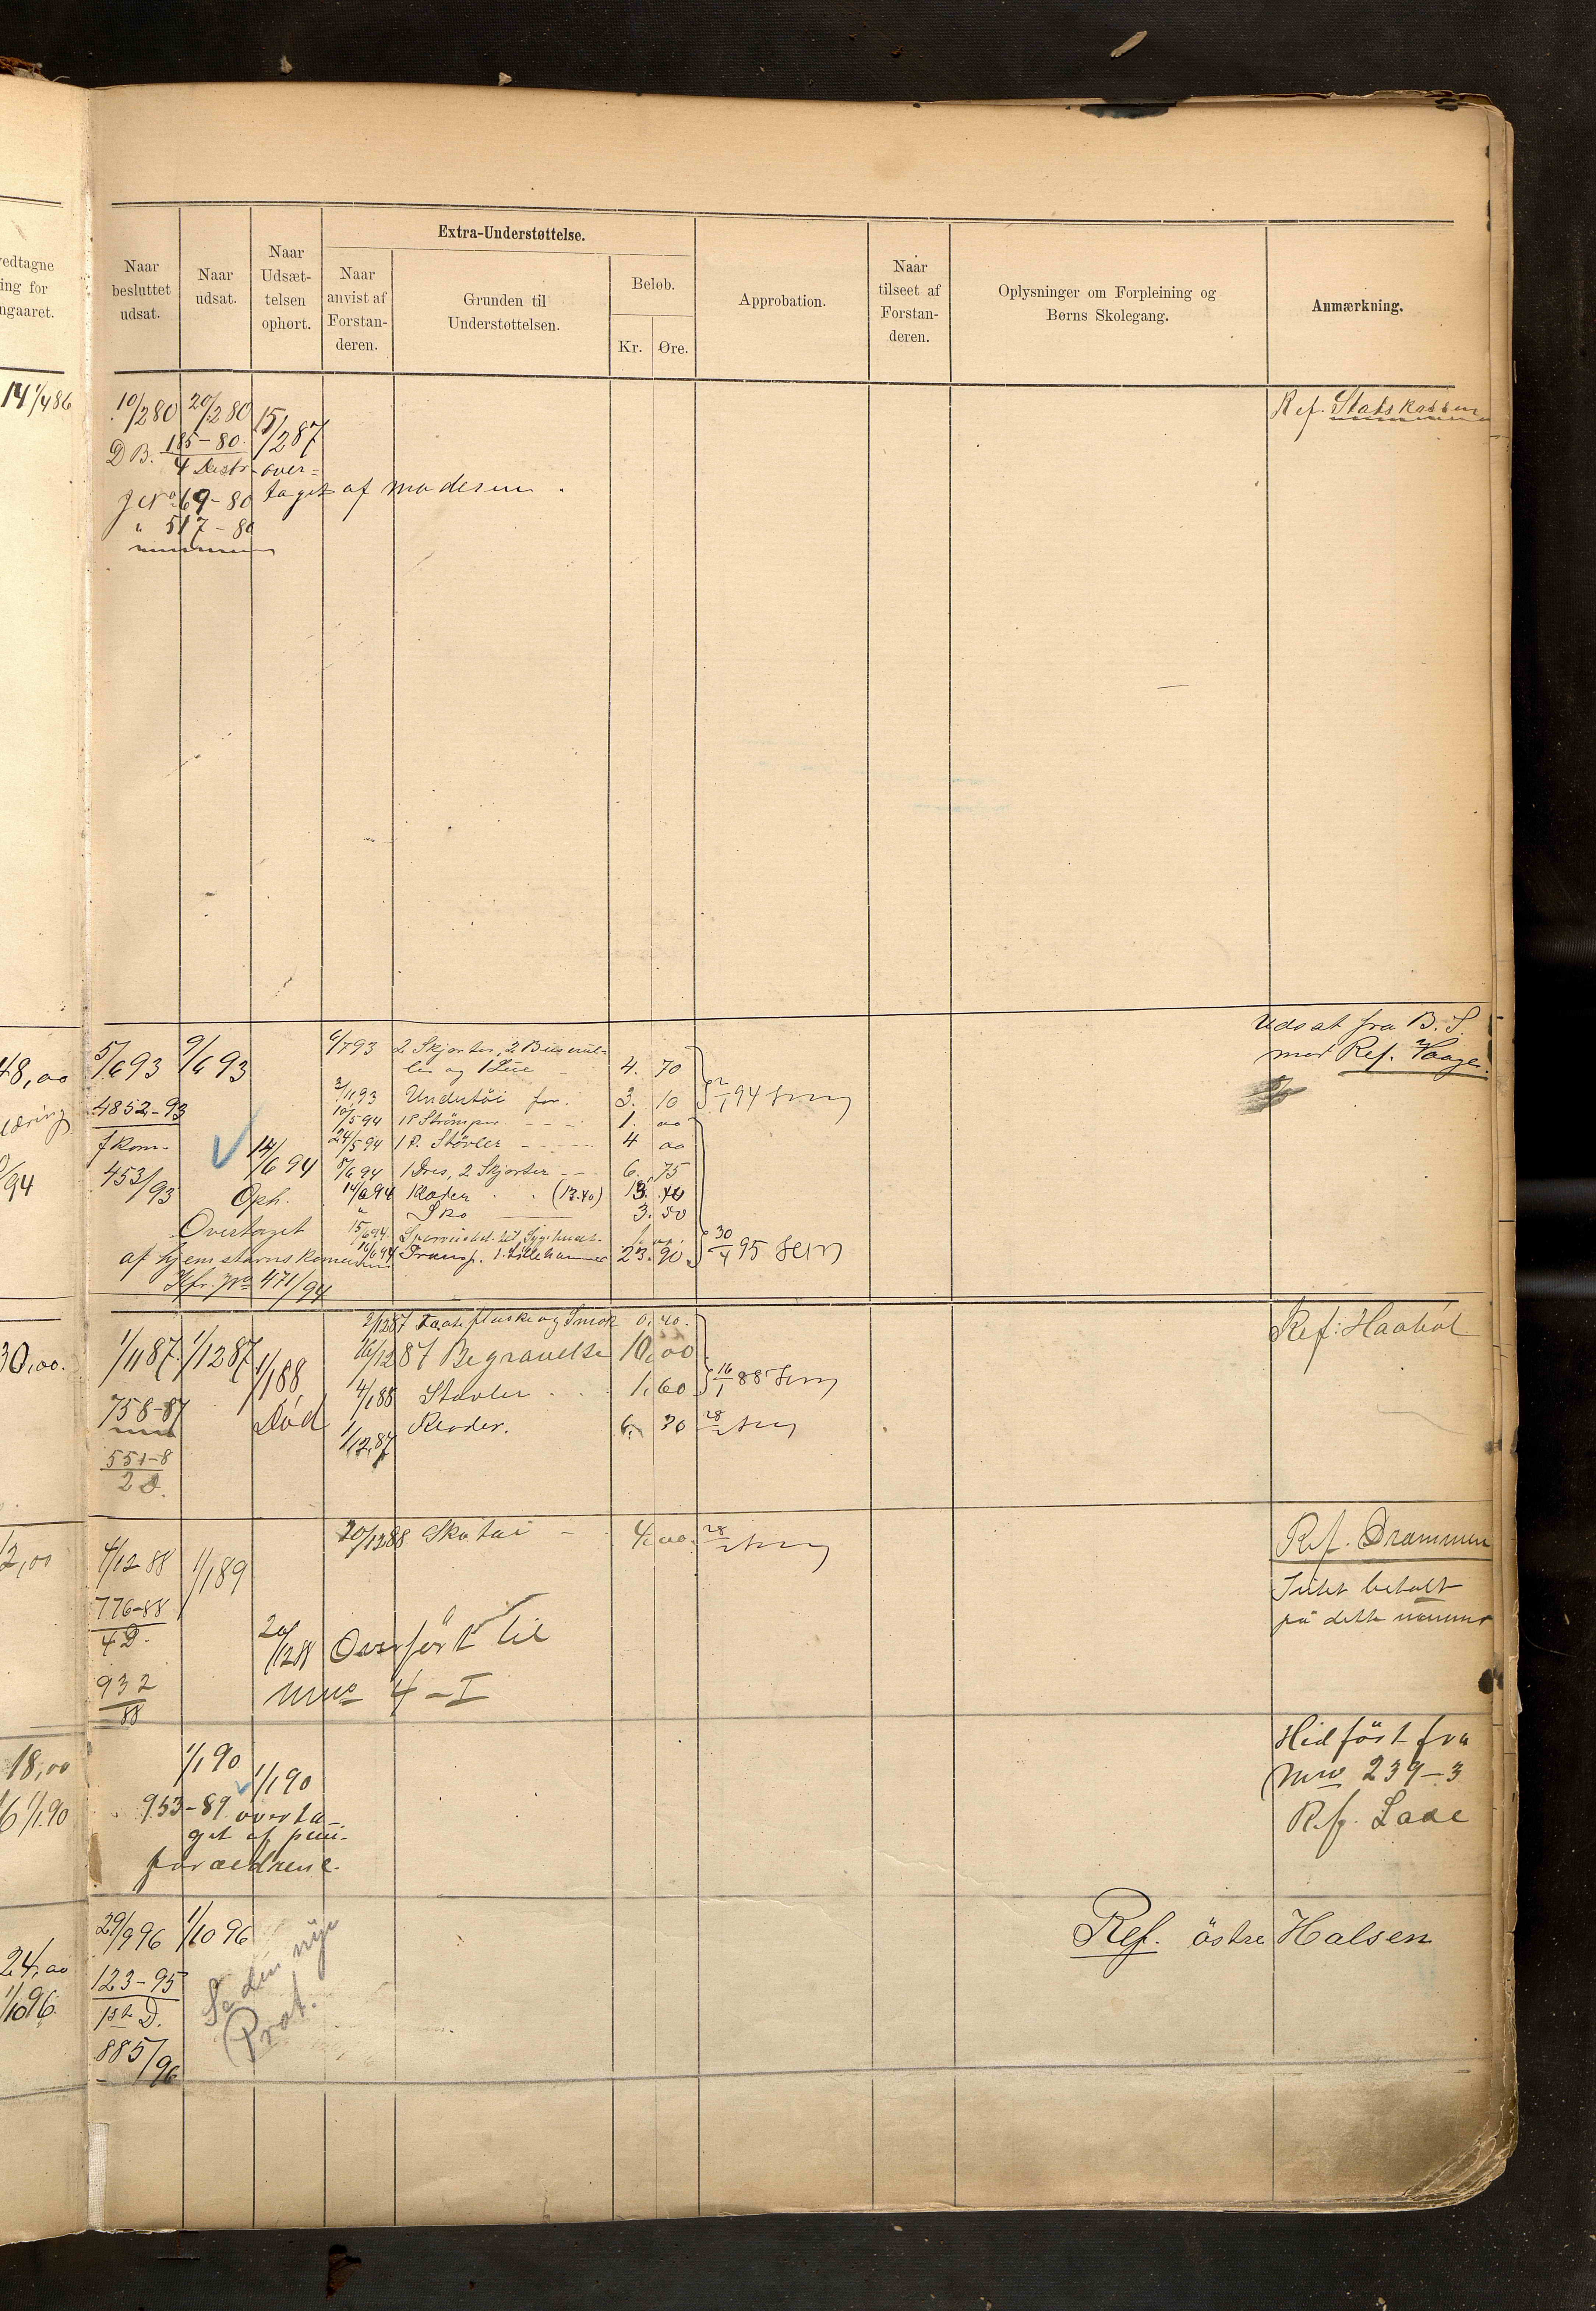 edtagne
ing for
ngaaret.
Naar
besluttet
udsat.
Naar
udsat.
Naar
Udsæt-
telsen
ophørt.
Extra-Understøttelse.
Naar
anvist af
Forstan-
deren.
Grunden til
Understøttelsen.
Beløb.
Kr. Øre.
Approbation.
Naar
tilseet af
Forstan-
deren.
Oplysninger om Forpleining og
Børns Skolegang.
Anmærkning.
14 1/4 86
10/2 80 20/2 80 15/2 87
Ref. Statskassen
D B. 185-80
4 Distr. over=
J No 69-80 taget af moderen.
" 517-80
48,00 5/6 93 9/6 93
6/7 93 2 Skjorter, 2 Buserul-
ler og 1 Lue 4. 70
Udsat fra B. S.
med Ref. Vaage.
4852-93
3/11 93 Undertöi for. 3. 10 2/1 94
10/5 94 1 P Strömper 1. 00
fkom.
24/5 94 1 P. Stövler 4 00
453/93
14/6 94
8/6 94 1 Dres, 2 Skjorter 6. 75
Oph.
14/6 94 Klæder (13.40) 13. 40
" Sko 3. 50
Overtaget
15/6 94.
af hjemstavnskomunen
16/6 94 Transp. t. Lillehammer 23. 90 30/4 95
Kfr. No 471/94
30,00. 1/11 87 1/12 87 1/1 88
2/12 87 Taateflaske og Smok 0. 40.
16/12 87 Begravelse 10,00
Ref: Haaböl
4/1 88 Stövler 1. 60 16/1 88
758-87 Död
1/12 87 Klæder. 6. 30 28/2
551-8
2 D.
12,00 4/12 88 1/1 89
20/12 88 Skotöi 4. 00. 28/2
Ref. Drammen
Intet betalt
på dette nummer
776-88
4 D.
20/12 88 Overfört til
932
88
No 4-I
18,00 1/1 90 1/1 90
6 1/1 90 953-89 overta-
get af plei-
forældrene.
Hidfört fra
No 239-3
Ref. Lade
29/9 96 1/10 96
Ref. östre Halsen
24,00 123-95
1/10 96 1ste D.
885/96
Se den nye
Prot.